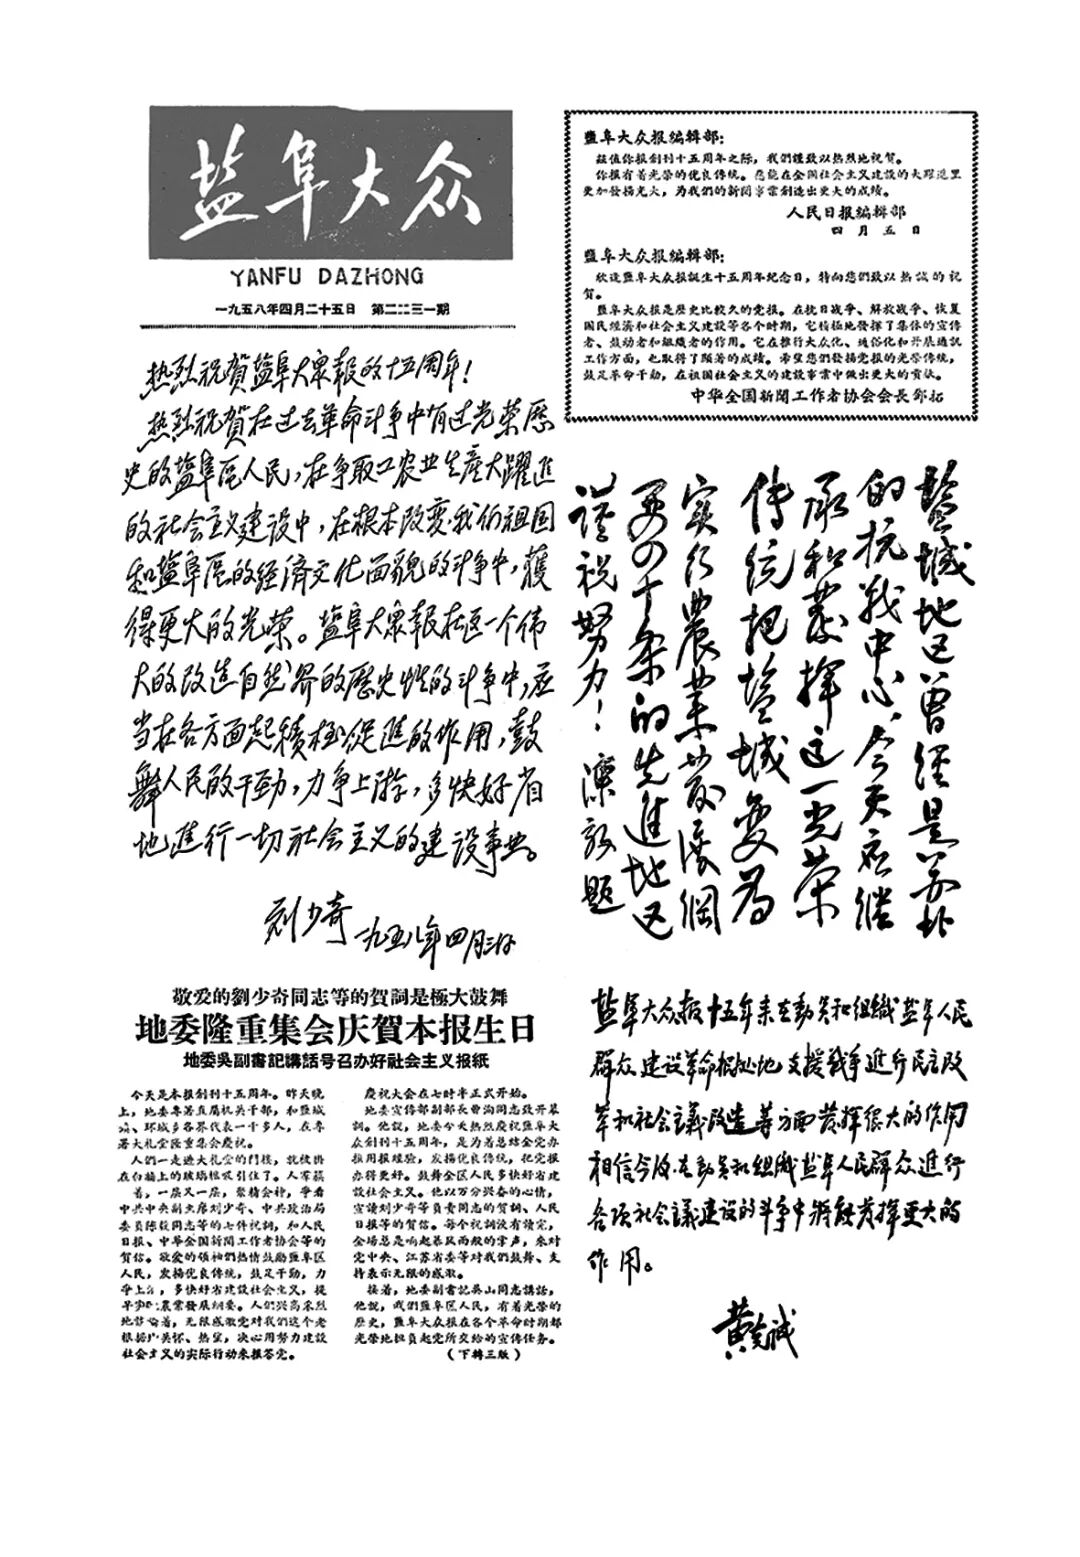 盐阜大众
YANFU DAZHONG
一九五八年四月二十五日 第二二三一期
热烈祝贺盐阜大众報的十五周年！
热烈祝贺在过去革命斗争中有过光荣历
史的盐阜区人民，在争取工农业生産大躍進
的社会主义建设中，在根本改变我们祖国
和盐阜区的经济文化面貌的斗争中，獲
得更大的光荣。盐阜大衆報在这一个伟
大的改造自然界的歷史性的斗争中，应
当在各方面起積極促進的作用，鼓
舞人民的干劲，力争上游，多快好省
地進行一切社会主义的建设事业。
刘少奇 一九五八年四月
敬爱的劉少奇同志等的賀詞是極大鼓舞
地委隆重集会庆賀本报生日
地委吳副書記講話号召办好社会主义报紙
今天是本报創刊十五周年。昨天晚
上，地委專署直屬机关干部，和鹽城
鎮、环城乡各界代表一千多人，在專
署大礼堂隆重集会慶祝。
人們一走進大礼堂的門樓，就被掛
在白牆上的玻璃框吸引住了。人常簇
着，一层又一层，聚精会神，爭看
中共中央副主席刘少奇、中共政治局
委員陈毅同志等的七件祝詞，和人民
日报、中华全国新聞工作者协会等的
賀信。敬爱的領袖們热情鼓励鹽阜区
人民，发揚优良傳統，鼓足干勁，力
爭上游，多快好省建設社会主义，提
早实現農業發展綱要。人們兴高采烈
地談論着，无限感激党对我們这个老
根据地关怀、热望，决心用努力建設
社会主义的实际行动来报答党。
慶祝大会在七时半正式开始。
地委宣傳部副部長曹洵同志致开幕
詞。他說，地委今天热烈慶祝鹽阜大
众創刊十五周年，是为着总結全党办
报用报經驗，发揚优良傳統，把党报
办得更好。鼓舞全区人民多快好省建
設社会主义。他以万分兴奋的心情，
宣讀刘少奇等負責同志的賀詞、人民
日报等的賀信。每个祝詞沒有讀完，
全場总是响起暴风雨般的掌声，来对
党中央、江苏省委等对我們鼓舞、支
持表示无限的感激。
接着，地委副書記吳山同志講話，
他說，我們鹽阜区人民，有着光榮的
歷史，鹽阜大众在各个革命时期都
光荣地担負起党所交給的宣傳任务。
（下轉三版）
鹽阜大众报編輯部：
茲值你报創刊十五周年之际，我們謹致以热烈地祝賀。
你报有着光榮的优良傳統。愿能在全国社会主义建設的大躍進里
更加發揚光大，为我們的新聞事業創造出更大的成績。
人民日报編輯部
四月五日
鹽阜大众报編輯部：
欣逢鹽阜大众报誕生十五周年紀念日，特向您們致以热誠的祝
賀。
鹽阜大众报是歷史比較久的党报。在抗日战争、解放战争、恢复
国民經濟和社会主义建設等各个时期，它積極地發揮了集体的宣傳
者、鼓动者和組織者的作用。它在推行大众化、通俗化和开展通訊
工作方面，也取得了顯著的成績。希望您們發揚党报的光荣傳統，
鼓足革命干勁，在祖国社会主义的建設事業中做出更大的貢献。
中华全国新聞工作者协会会長鄧拓
鹽城地区曾經是苏北
的抗战中心，今天应继
承和发挥这一光荣
传统把盐城变为
实行農業发展綱
要四十条的先進地区
谨祝努力！陳毅題
盐阜大众报十五年来在動员和组織盐阜人民
群众建设革命根据地支援战争進行民主改
革和社会主義改造等方面发挥很大的作用
相信今后在動员和组織盐阜人民群众進行
各项社会主義建设的斗争中将能发挥更大的
作用。
黄克诚